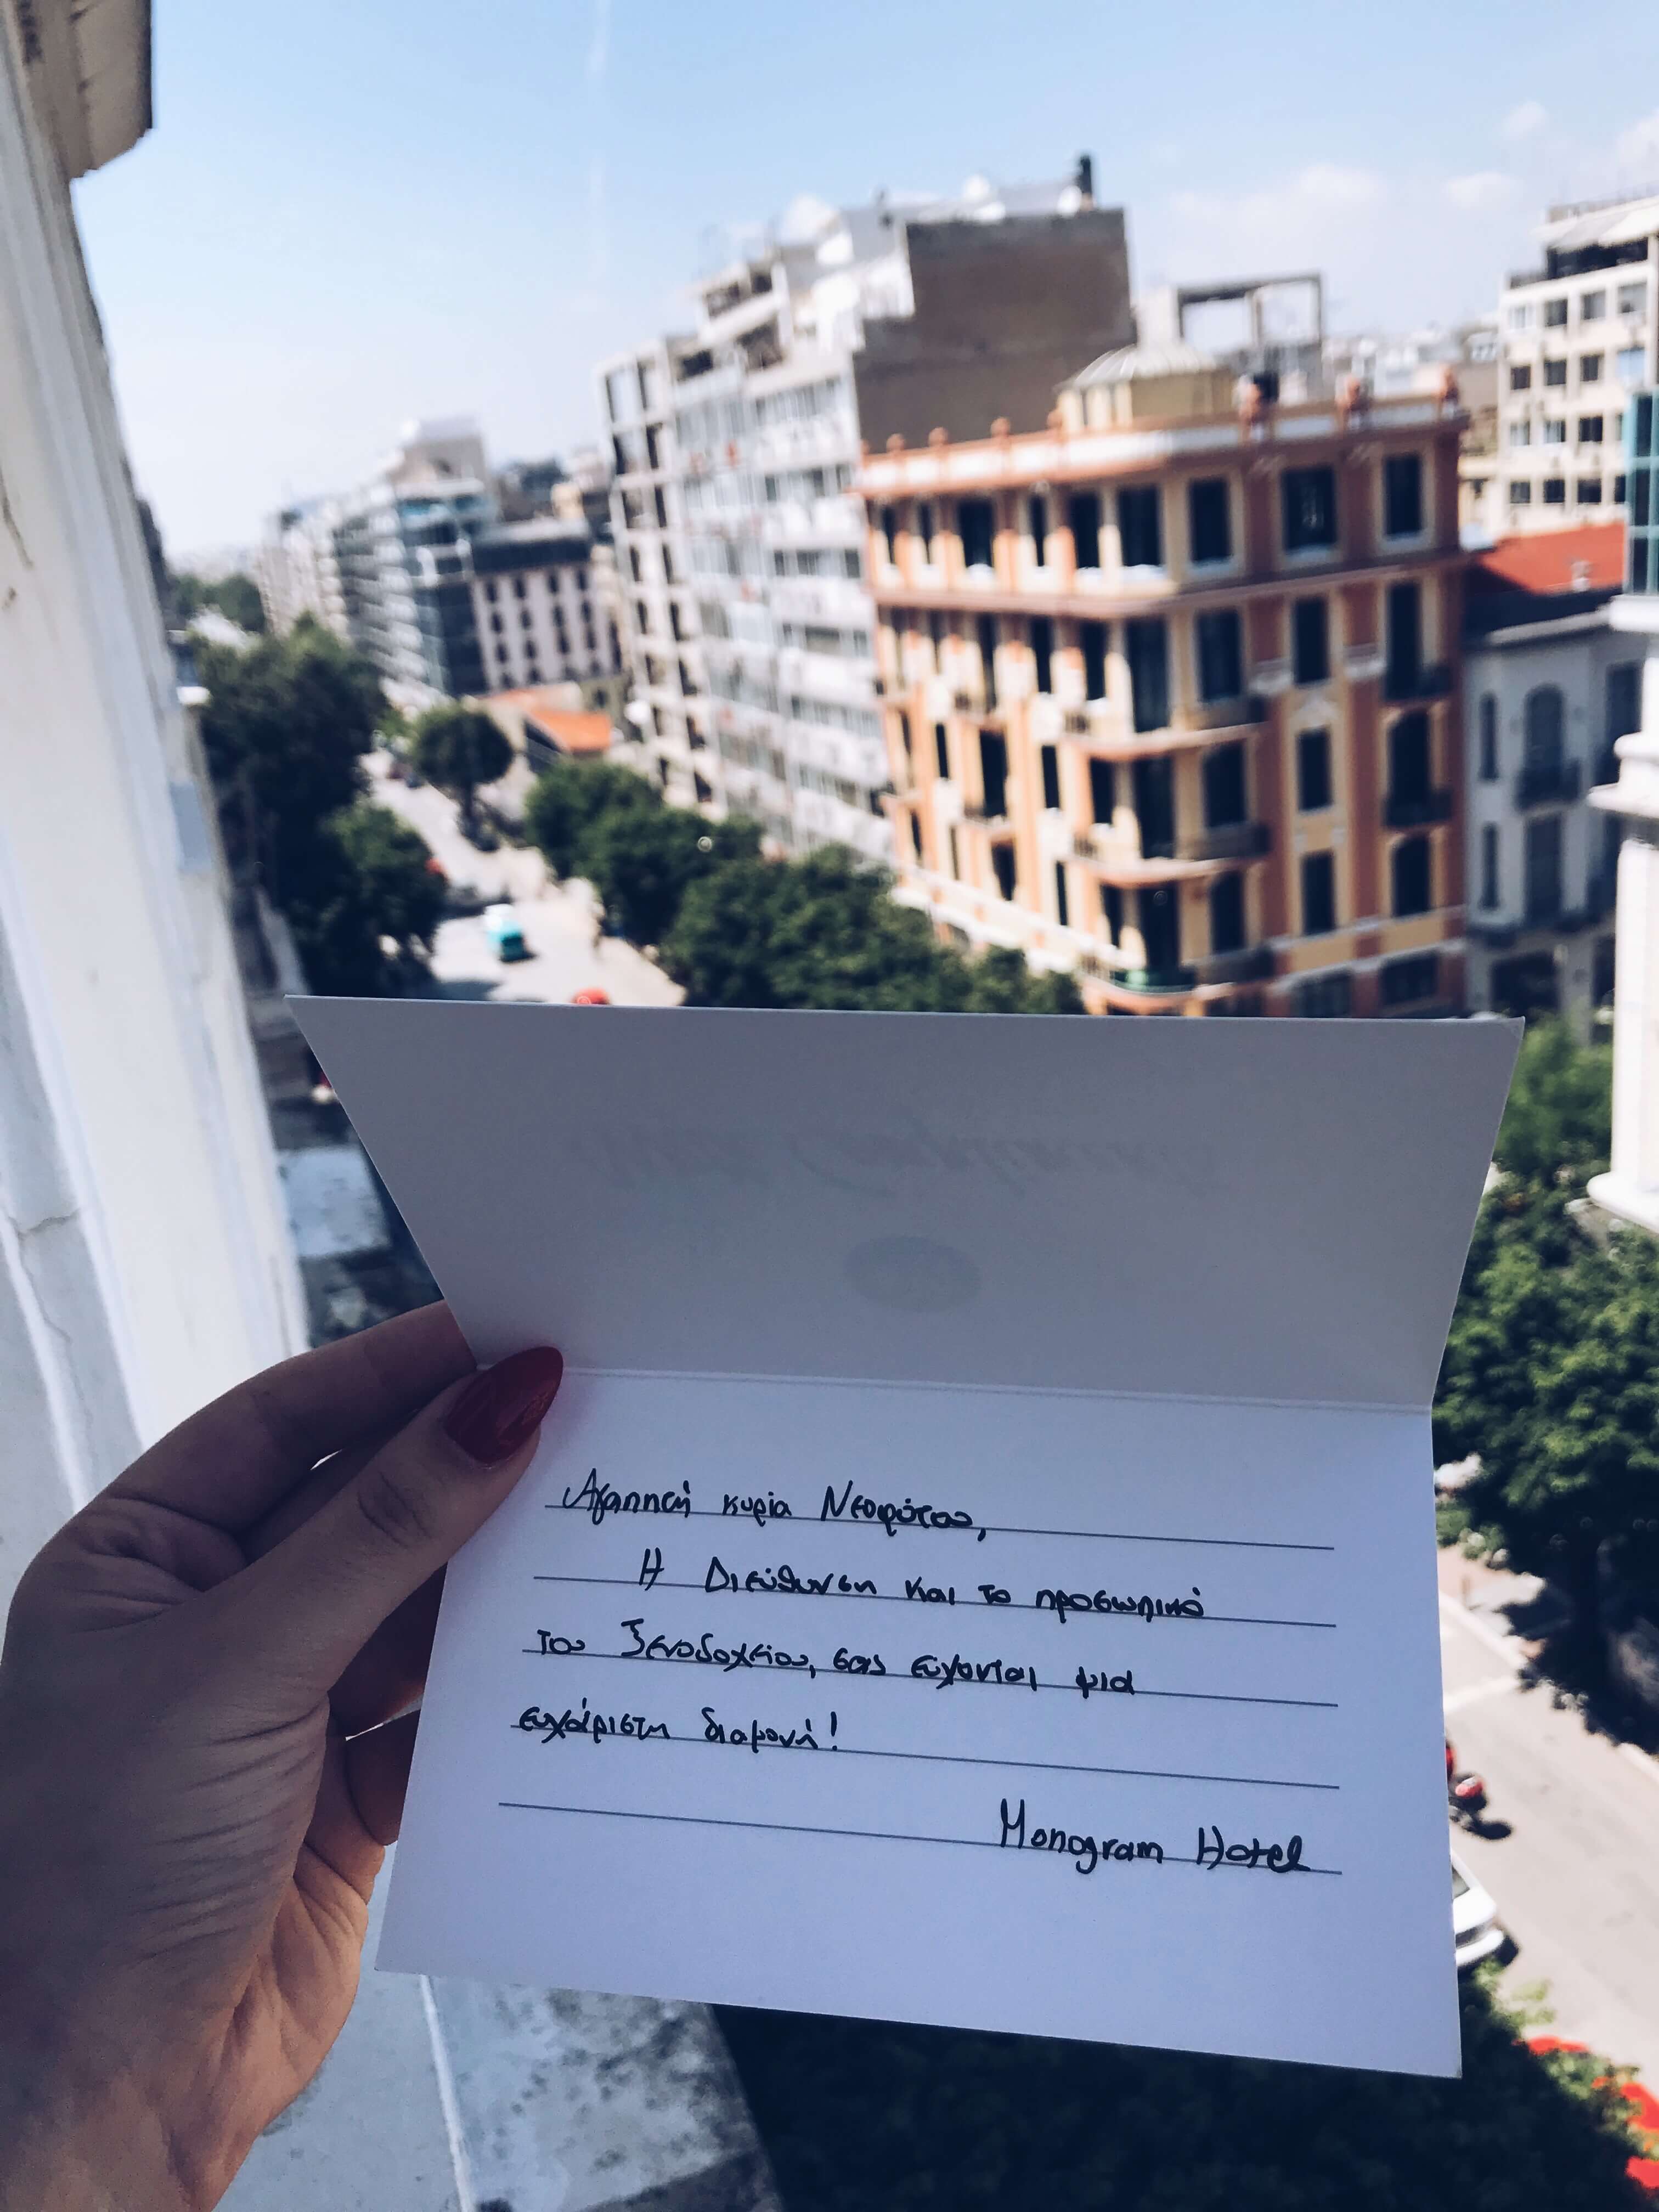 Αγαπητή κυρία Νεοφύτου,
Η Διεύθυνση και το προσωπικό
του Ξενοδοχείου, σας εύχονται μια
ευχάριστη διαμονή!
Monogram Hotel